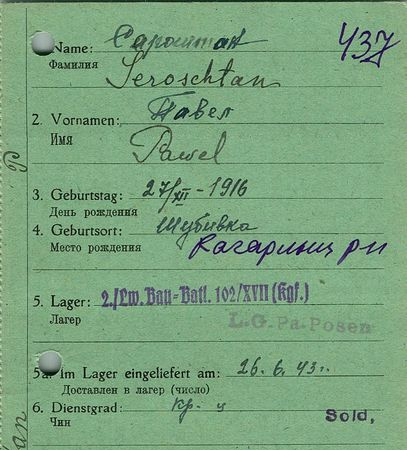 Name: Сароштан
437
Фамилия
Seroschtan
2. Vornamen: Павел
Имя
Pawel
3. Geburtstag: 27/XII-1916
День рождения
4. Geburtsort: Шубивка
Место рождения Кагарлиц р-н
5. Lager: 2./Lw. Bau-Batl. 102/XVII (Kgf.)
Лагер L.G.Pa-Posen
5a. Im Lager eingeliefert am: 26. 6. 43 г.
Доставлен в лагер (число)
6. Dienstgrad: кр-ц
Чин Sold,